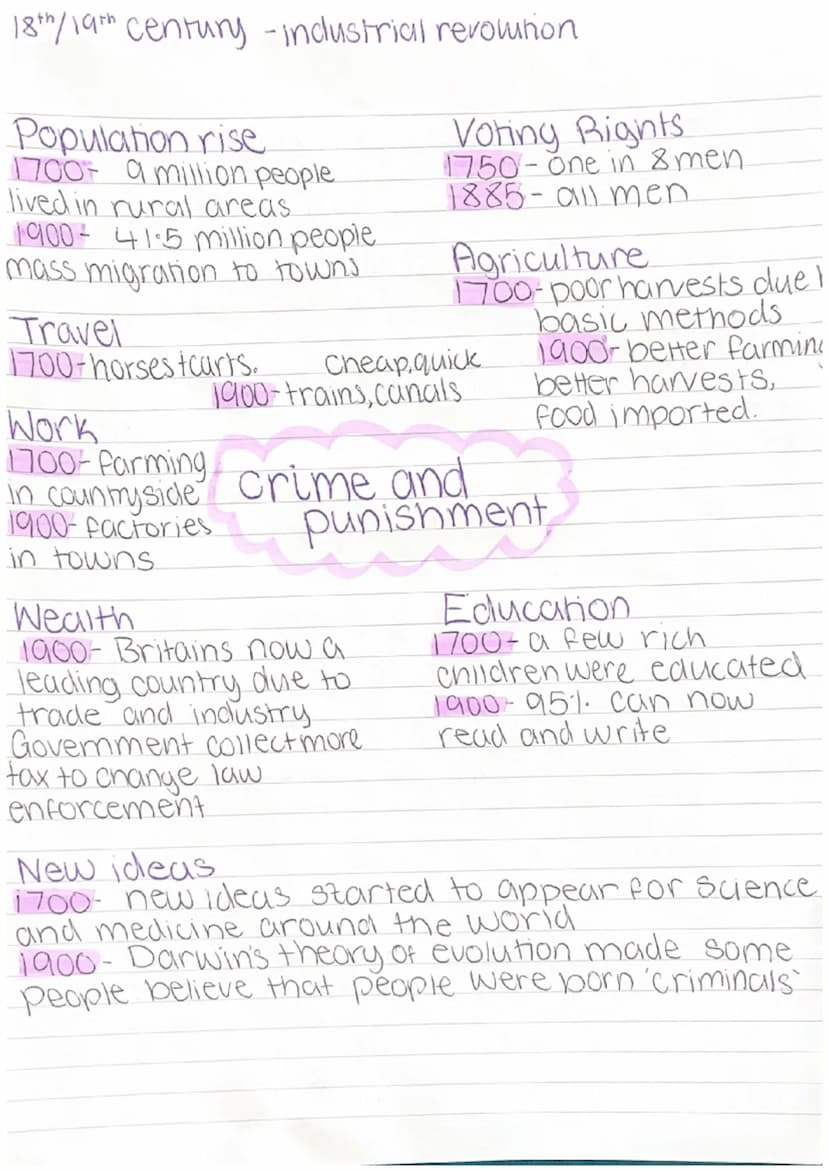 18th/19th century - industrial revolution
Population rise
1700- 9 million people
lived in rural areas
1900- 41.5 million people
mass migration to towns
Voting Rights
1750- one in 8 men
1885- all men
Agriculture
1700- poor harvests due
basic methods
1900- better farming
better harvests,
food imported.
Travel
1700- horses + carts.
cheap, quick
1900- trains, canals
Work
1700- farming
in countryside
1900- factories
in towns
crime and
punishment
Wealth
1900- Britains now a
leading country due to
trade and industry
Government collect more
tax to change law
enforcement
Education
1700- a few rich
children were educated
1900- 95% can now
read and write
New ideas
1700- new ideas started to appear for science
and medicine around the world
1900- Darwin's theory of evolution made some
people believe that people were born 'criminals'